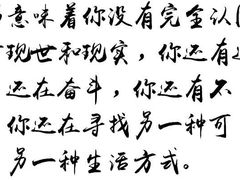 意味着你没有完全认同
现世和现实，你还有
还在奋斗，你还有不
你还在寻找另一种可
另一种生活方式。